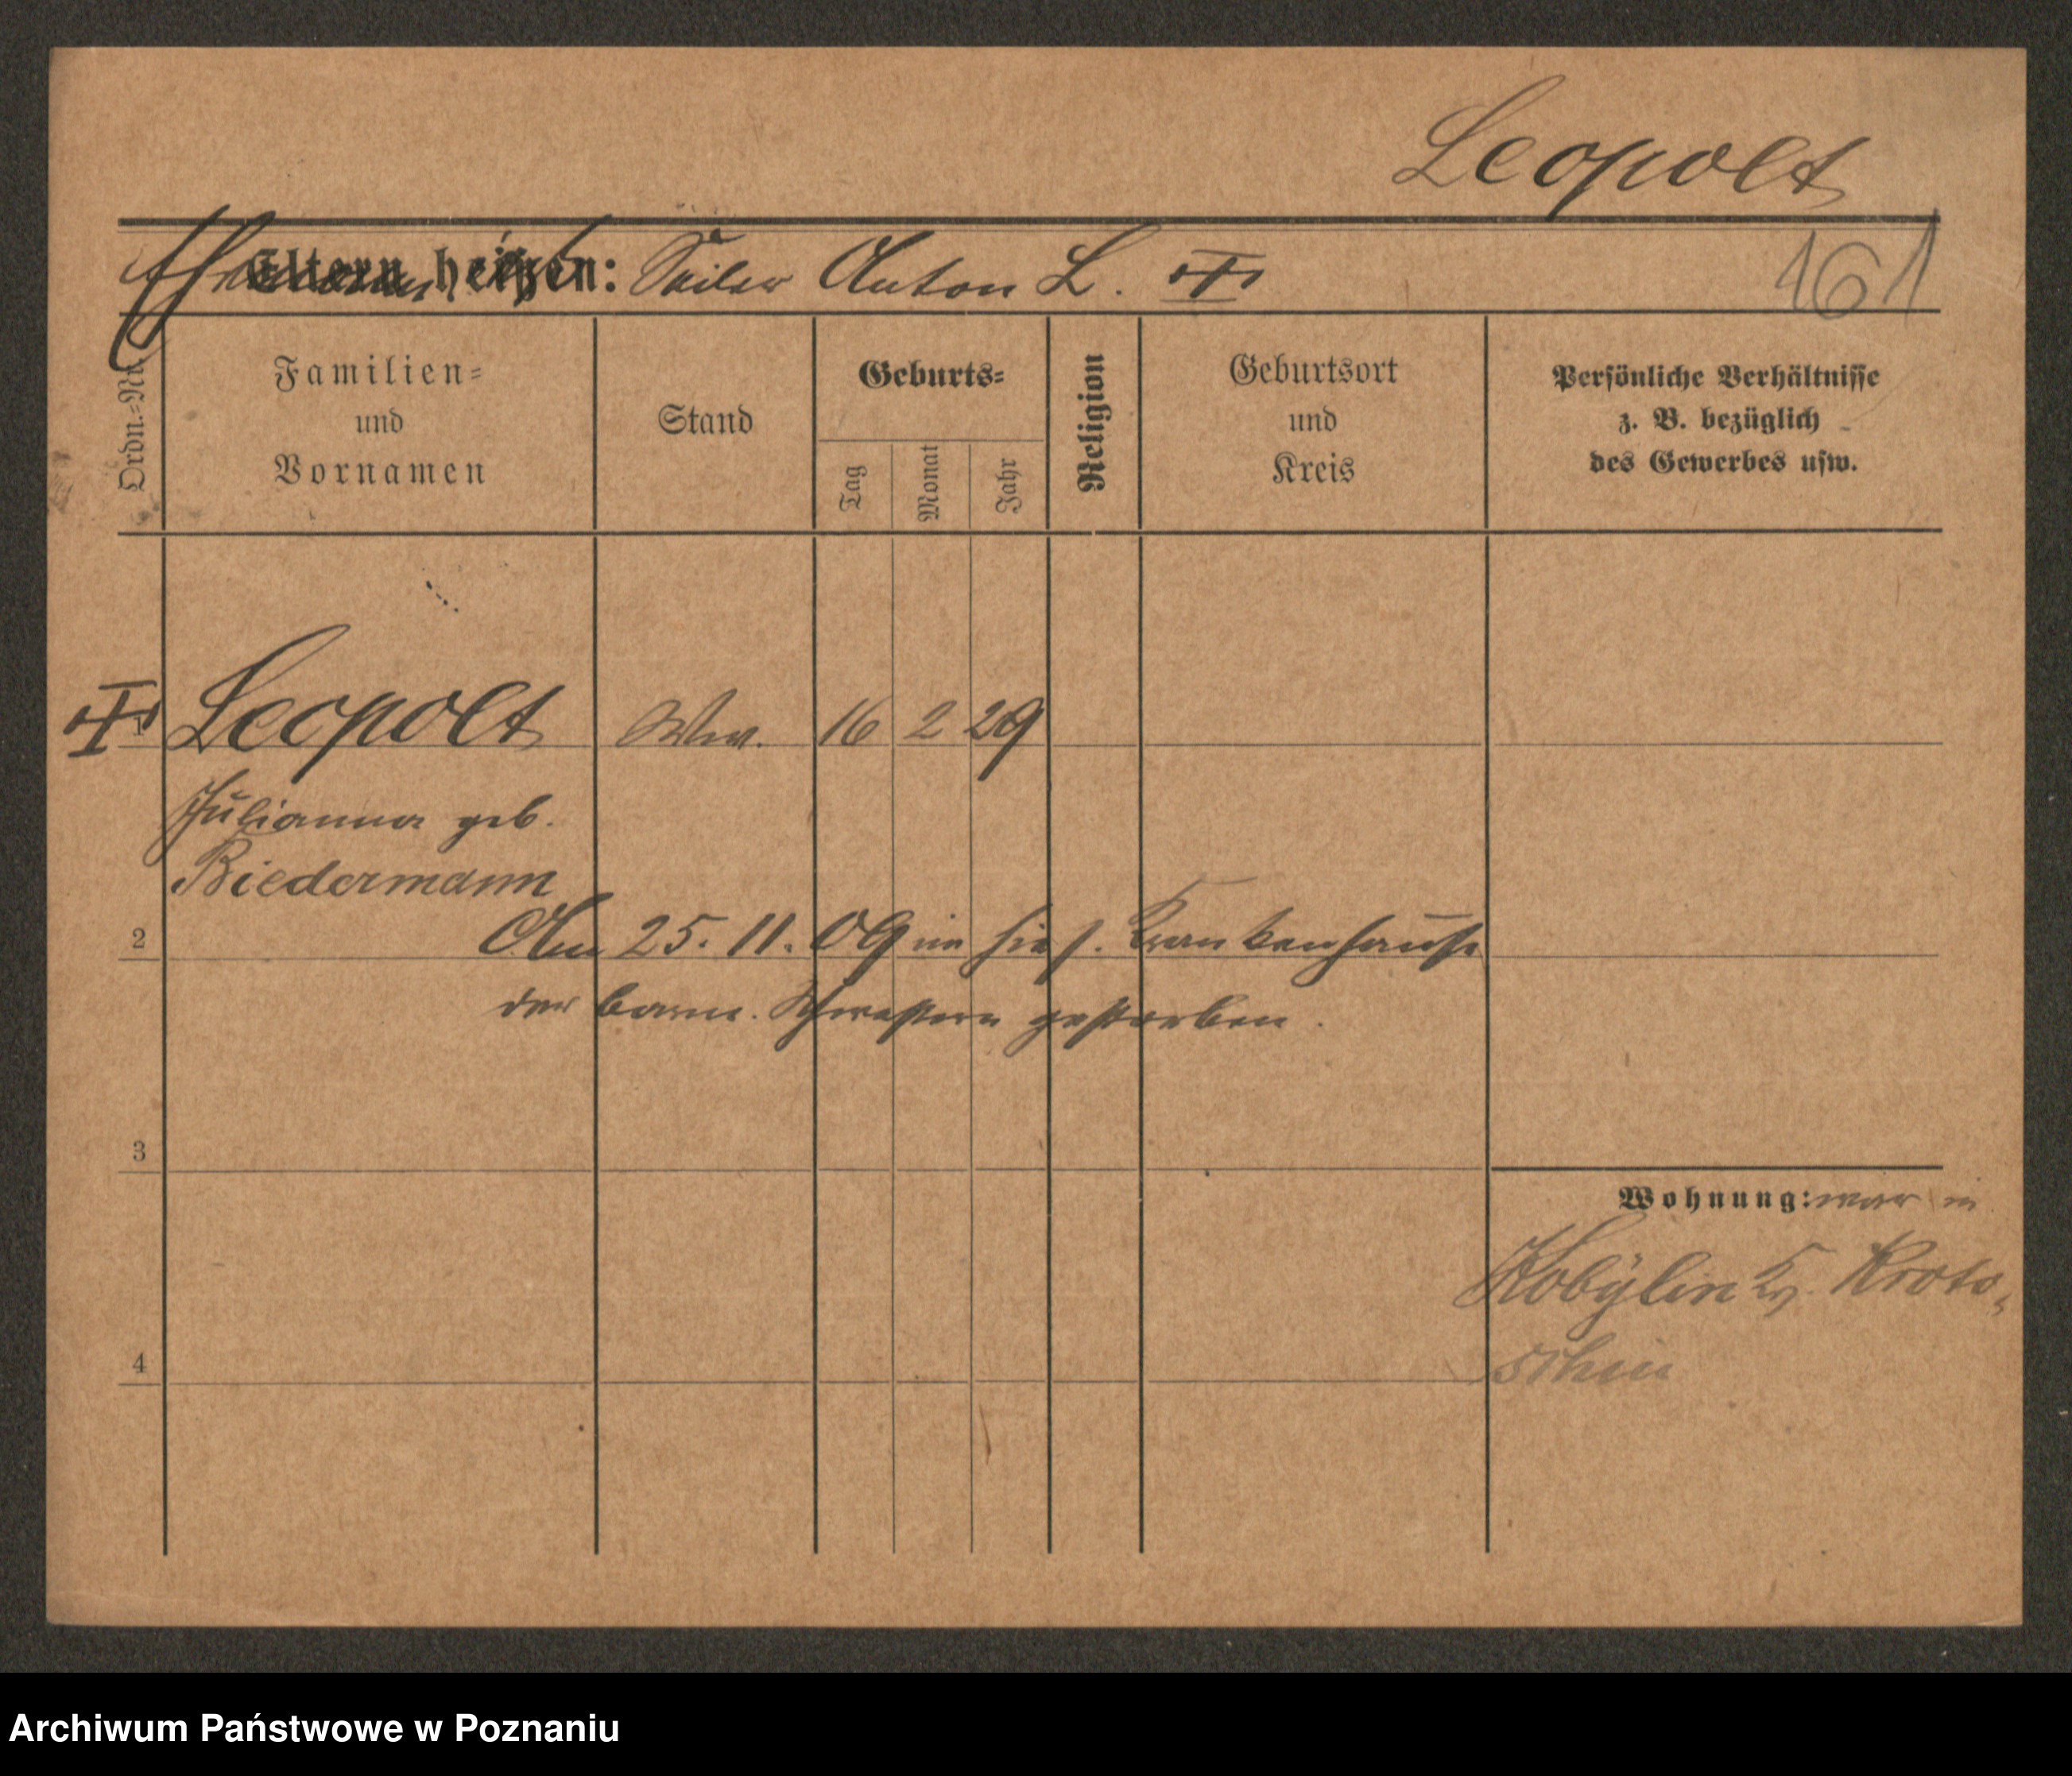 Leopolt
Ehemann hieß
Eltern heißen: Seiler Anton L.
161
Ordn.=Nr.
Familien=
und
Vornamen
Stand
Geburts=
Tag
Monat
Jahr
Religion
Geburtsort
und
Kreis
Persönliche Verhältnisse
z. B. bezüglich
des Gewerbes usw.
Leopolt Ww. 16 2 29
Julianna geb.
Biedermann
2
Am 25. 11. 09 im hies. Krankenhause
der barm. Schwestern gestorben.
3
Wohnung: war in
Kobylin Kr. Kroto-
schin
4
Archiwum Państwowe w Poznaniu